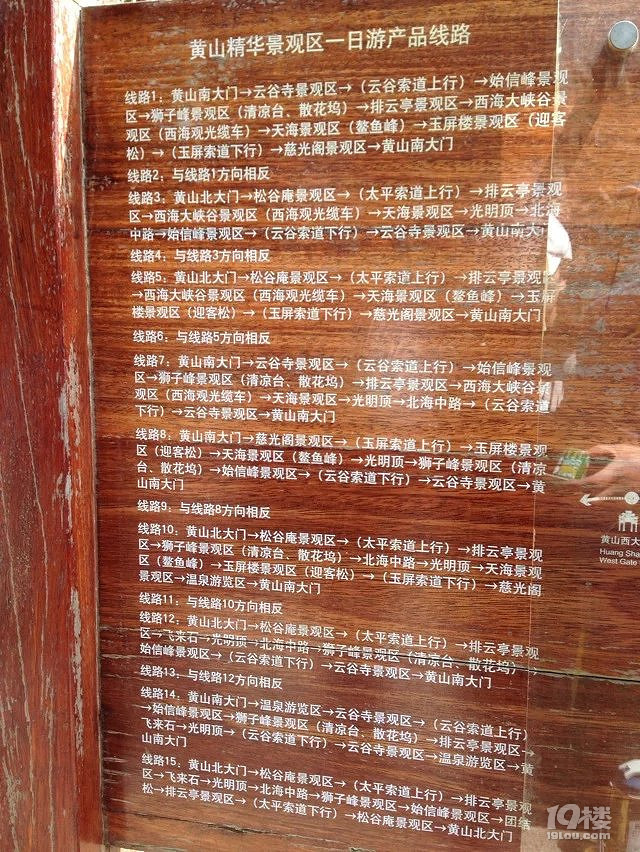 黄山精华景观区一日游产品线路
线路1：黄山南大门→云谷寺景观区→（云谷索道上行）→始信峰景观
区→狮子峰景观区（清凉台、散花坞）→排云亭景观区→西海大峡谷景
观区（西海观光缆车）→天海景观区（鳌鱼峰）→玉屏楼景观区（迎客
松）→（玉屏索道下行）→慈光阁景观区→黄山南大门
线路2：与线路1方向相反
线路3：黄山北大门→松谷庵景观区→（太平索道上行）→排云亭景观
区→西海大峡谷景观区（西海观光缆车）→天海景观区→光明顶→北海
中路→始信峰景观区→（云谷索道下行）→云谷寺景观区→黄山南大门
线路4：与线路3方向相反
线路5：黄山北大门→松谷庵景观区→（太平索道上行）→排云亭景观区
→西海大峡谷景观区（西海观光缆车）→天海景观区（鳌鱼峰）→玉屏
楼景观区（迎客松）→（玉屏索道下行）→慈光阁景观区→黄山南大门
线路6：与线路5方向相反
线路7：黄山南大门→云谷寺景观区→（云谷索道上行）→始信峰景观
区→狮子峰景观区（清凉台、散花坞）→排云亭景观区→西海大峡谷景
观区（西海观光缆车）→天海景观区→光明顶→北海中路→（云谷索道
下行）→云谷寺景观区→黄山南大门
线路8：黄山南大门→慈光阁景观区→（玉屏索道上行）→玉屏楼景观
区（迎客松）→天海景观区（鳌鱼峰）→光明顶→狮子峰景观区（清凉
台、散花坞）→始信峰景观区→（云谷索道下行）→云谷寺景观区→黄
山南大门
线路9：与线路8方向相反
线路10：黄山北大门→松谷庵景观区→（太平索道上行）→排云亭景观
区→狮子峰景观区（清凉台、散花坞）→北海中路→光明顶→天海景观
区（鳌鱼峰）→玉屏楼景观区（迎客松）→（玉屏索道下行）→慈光阁
景观区→温泉游览区→黄山南大门
线路11：与线路10方向相反
线路12：黄山北大门→松谷庵景观区→（太平索道上行）→排云亭景观
区→飞来石→光明顶→北海中路→狮子峰景观区（清凉台、散花坞）→
始信峰景观区→（云谷索道下行）→云谷寺景观区→黄山南大门
线路13：与线路12方向相反
线路14：黄山南大门→温泉游览区→云谷寺景观区→（云谷索道上行）
→始信峰景观区→狮子峰景观区（清凉台、散花坞）→排云亭景观区→
飞来石→光明顶→（云谷索道下行）→云谷寺景观区→温泉游览区→黄
山南大门
线路15：黄山北大门→松谷庵景观区→（太平索道上行）→排云亭景观
区→飞来石→光明顶→北海中路→狮子峰景观区→始信峰景观区→团结
松→排云亭景观区→（太平索道下行）→松谷庵景观区→黄山北大门
黄山西大
Huang Sha
West Gate
19楼
19lou.com